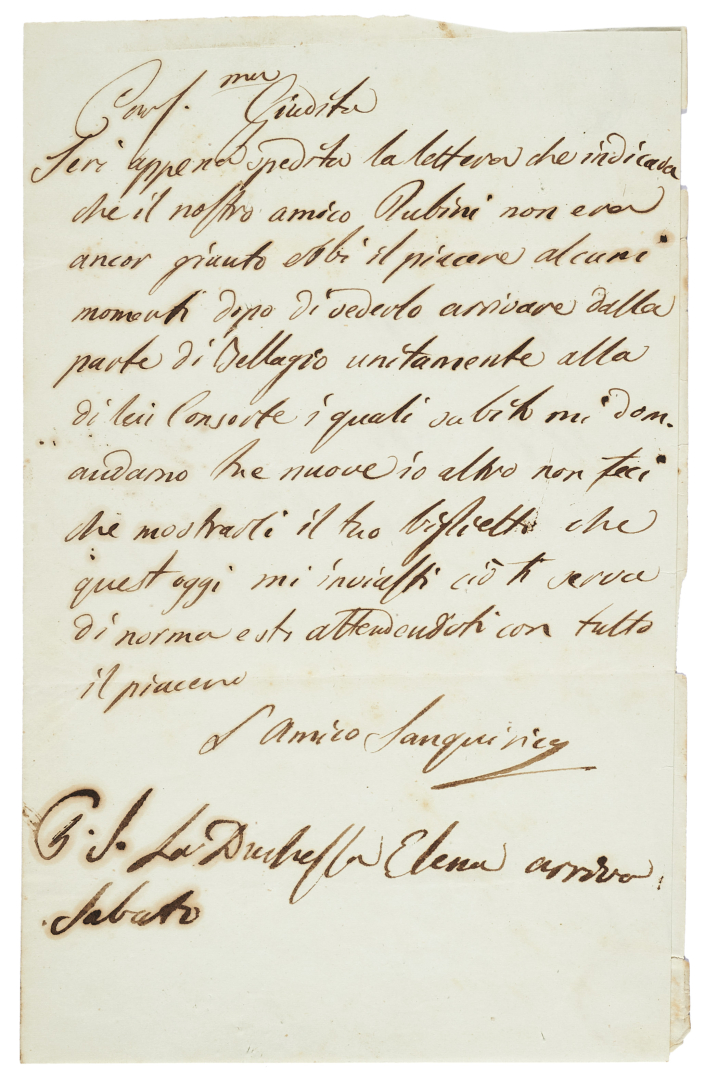 Cariss.ma Giudita
Jeri appena spedita la lettera che indicava
che il nostro amico Rubini non era
ancor giunto ebbi il piacere alcuni
momenti dopo di vederlo arrivare dalla
parte di Bellagio unitamente alla
di lui Consorte i quali subito mi dom-
andarno tue nuove io altro non feci
che mostrarli il tuo biglietto che
quest oggi mi inviasti ciò ti serva
di norma e sti attendendoti con tutto
il piacere
L'Amico Sanquirico
P.S. La Duchessa Elena arriva
Sabato